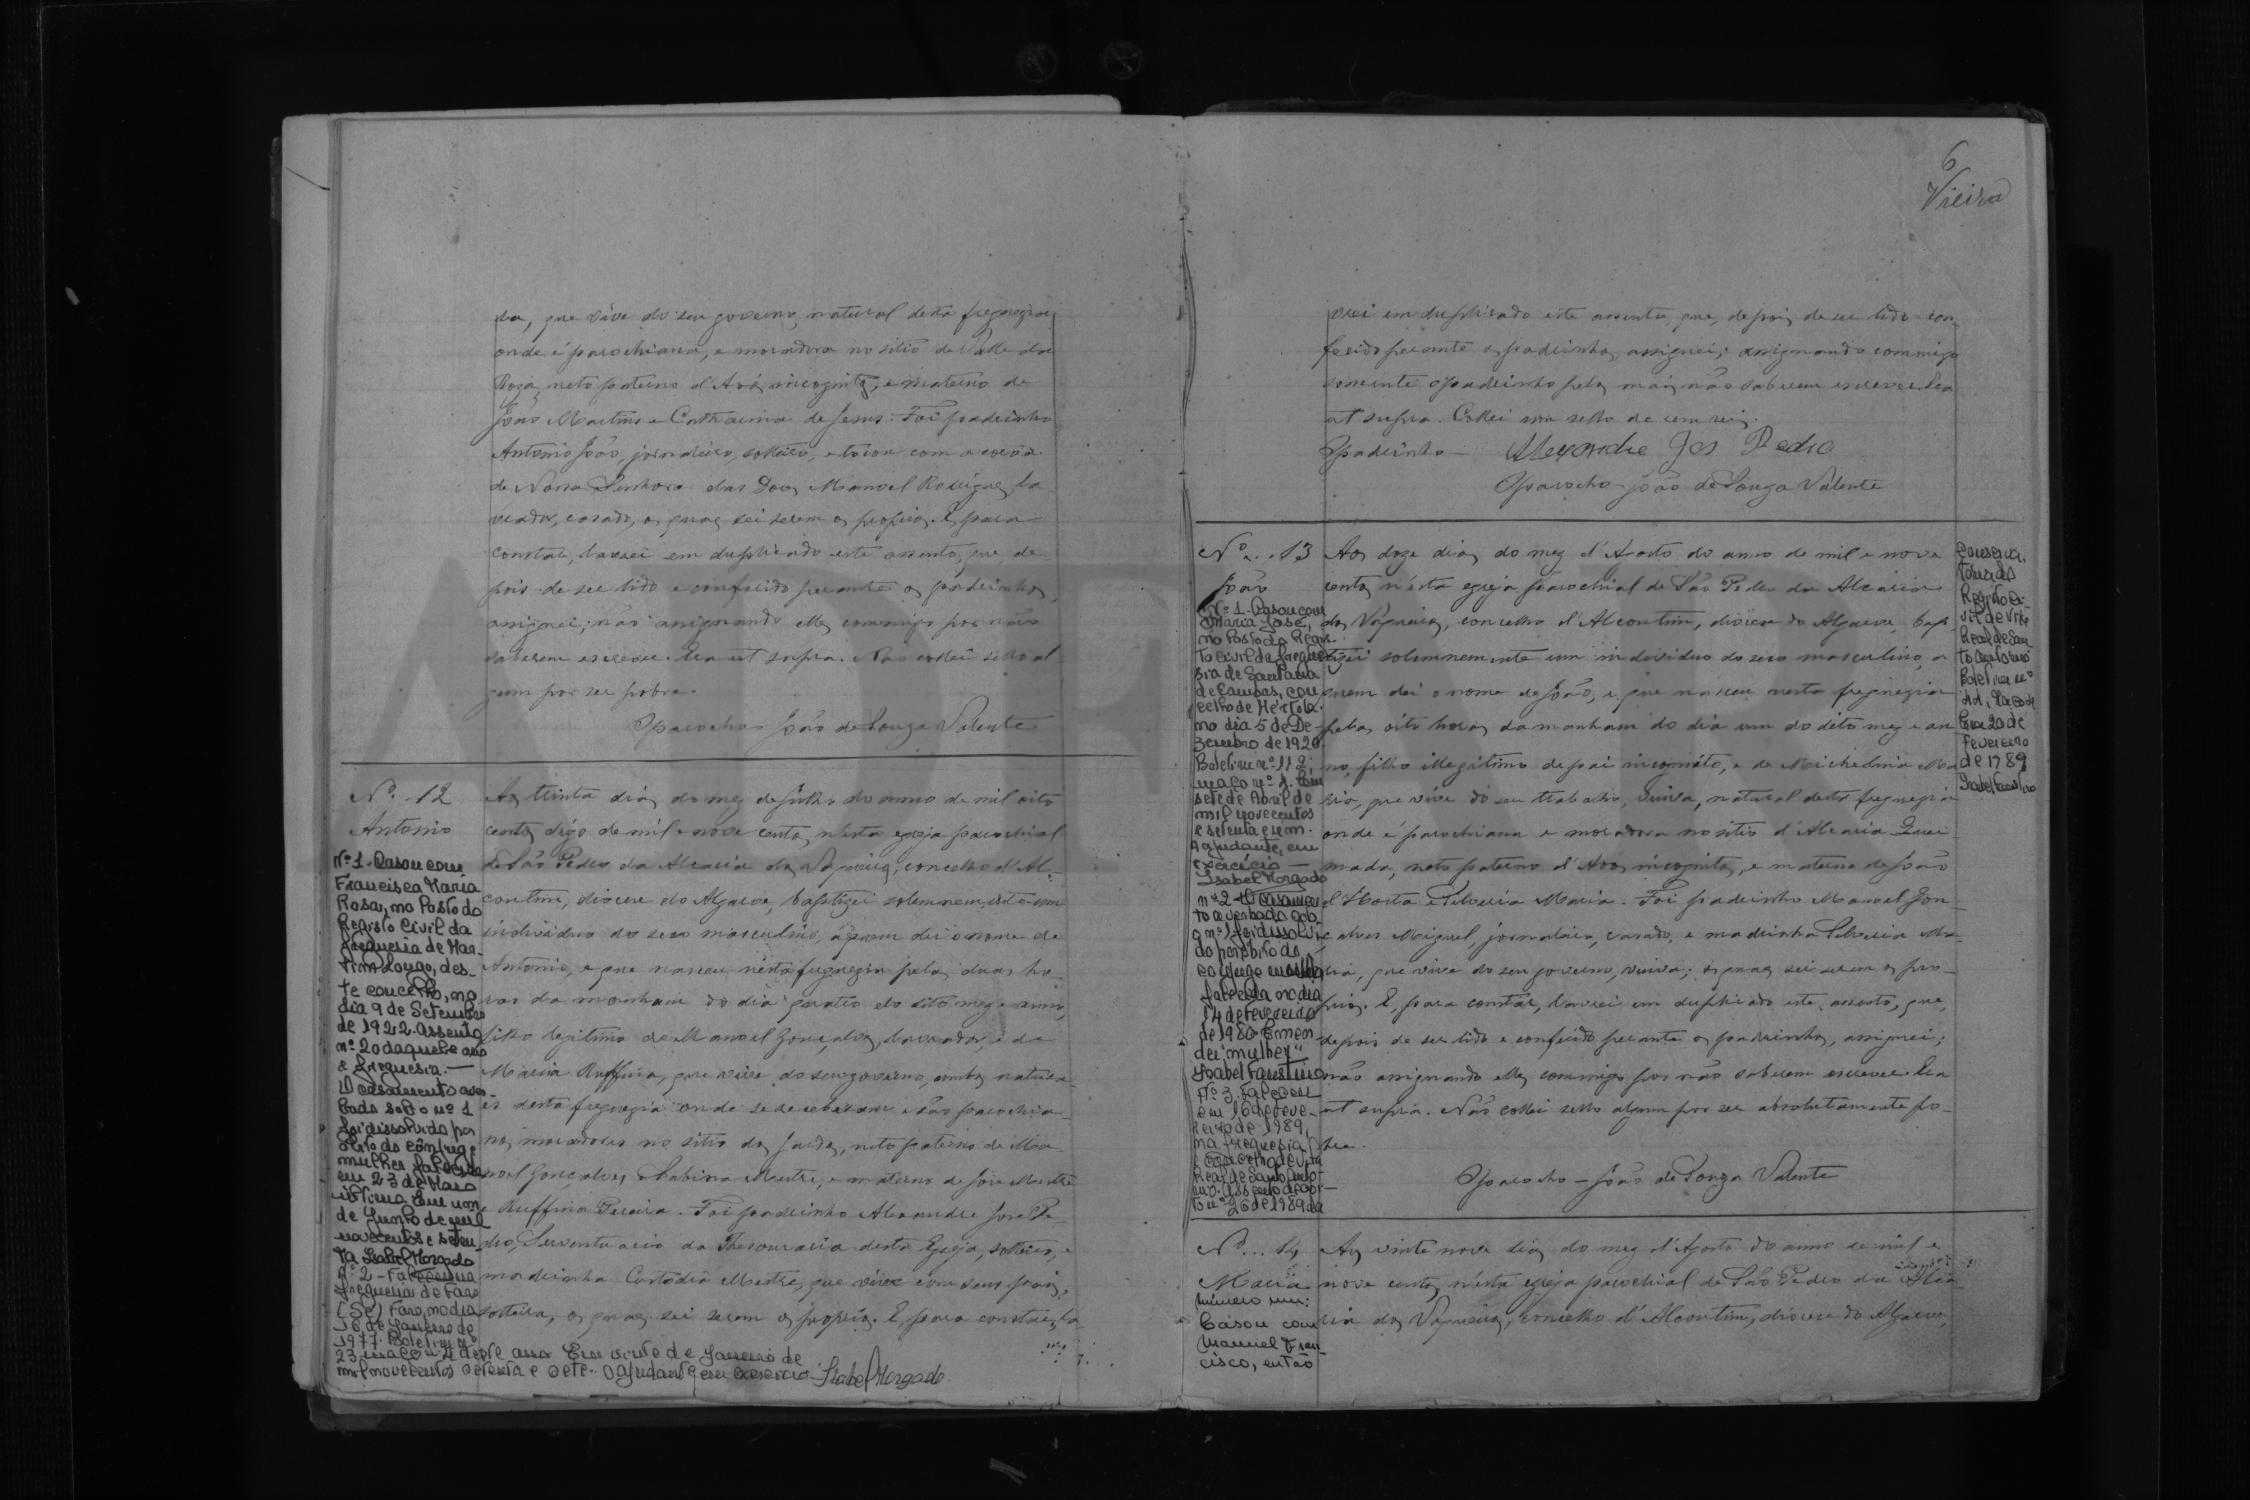 da, que vive do seu governo, natural desta freguezia
onde é parochiana, e moradora no sitio de Valle da
Roza, neto paterno d'Avós incognitos, e materno de
João Martins e Catharina de Jesus. Foi padrinho
Antonio João, jornaleiro, solteiro, e tocou com a corôa
de Nossa Senhora das Dores Manoel Rodrigues, la
vrador, casado, os quaes sei serem os proprios. E, para
constar, lavrei em duplicado este assento, que, de
pois de ser lido e conferido perante os padrinhos,
assignei; não assignando elles commigo por não
saberem escrever. Era ut supra. Não collei sello al
gum por ser pobre.
O parocho João de Souza Valente
Nº 12
Antonio
Aos trinta dias do mez de Julho do anno de mil oito
centos digo de mil e nove centos, n'esta egreja parochial
de São Pedro da Alcaria dos Vaqueiros, concelho d'Al
coutim, diocese do Algarve, baptizei solemnemente um
individuo do sexo masculino, a quem dei o nome de
Antonio, e que nasceu nesta freguezia pelas duas ho
ras da manham do dia quatro do dito mez e anno,
filho legitimo de Manoel Gonçalves, lavrador, e de
Maria Ruffina, que vive do seu governo, ambos natura
es desta freguezia onde se receberam e são parochia
nos, moradores no sitio do
neto paterno de Ma
noel Gonçalves e Sabina Mestre, e materno de José Mestre
e Ruffina Pereira. Foi padrinho Alexandre José Pe
dro, Serventuario da Thesouraria desta Egreja, solteiro, e
madrinha Custodia Mestre, que vive com seus paes,
solteira, os quaes sei serem os proprios. E, para constar, la
Nº 1 Casou com
Francisca Maria
Rosa, no Posto do
Registo Civil da
freguesia de Mar-
tim Longo, des-
te concelho, no
dia 9 de Setembro
de 1922. Assento
nº 20 daquele ano
e freguesia.
O casamento aver-
bado sob o nº 1
foi dissolvido por
óbito do cônjuge
mulher falecida
em 23 de Maio
último. Em um
de Junho de mil
novecentos e seten-
ta Isabel Morgado
Nº 2 - Faleceu na
freguesia de Faro
(Sé) Faro, no dia
18 de Janeiro de
1977. Boletim nº
23 maço nº 4 deste ano Em vinte de Janeiro de
mil novecentos setenta e sete. O ajudante em exercicio Isabel Morgado
6
Vieira
vrei em duplicado este assento, que, depois de ser lido e con
ferido perante os padrinhos, assignei; assignando commigo
somente o padrinho pela mais não saberem escrever. Era
ut supra. Collei um sello de cem reis.
O padrinho - Alexandre Jos Pedro
O parocho João de Souza Valente
Nº 13
João
Aos doze dias do mez d'Agosto do anno de mil e nove
centos, n'esta egreja parochial de São Pedro da Alcaria
dos Vaqueiros, concelho d'Alcoutim, diocese do Algarve, bap
tizei solemnemente um individuo do sexo masculino, a
quem dei o nome de João, e que nasceu nesta freguezia
pelas oito horas da manham do dia um do dito mez e an
no, filho illegitimo de pai incognito, e de Michelina Ma
ria, que vive do seu trabalho, viuva, natural desta freguezia
onde é parochiana e moradora no sitio d'Alcaria Quei
mada, neto paterno d'Avos incognitos, e materno de João
d'Horta e Silveria Maria. Foi padrinho Manoel Gon
çalves Miguel, jornaleiro, casado, e madrinha Silveria Ma
ria, que vive do seu governo, viuva; os quaes sei serem os pro
prios. E, para constar, lavrei em duplicado este assento, que,
depois de ser lido e conferido perante os padrinhos, assignei;
não assignando elles commigo por não saberem escrever. Era
ut supra. Não collei sello algum por ser absolutamente po
bre.
O parocho - João de Souza Valente
Nº 1 - Casou com
Maria José,
no Posto do Regis-
to Civil da freguê-
sia de Santana
de Cambas, con-
celho de Mértola
no dia 5 de De-
zembro de 1920.
Boletim nº 112,
maço nº 1. Em
sete de Abril de
mil novecentos
e setenta e um.
Ajudante, em
exercício -
Isabel Morgado
nº 2 - O casamen-
to averbado sob
o nº 1 foi dissolvi-
do por óbito do
conjuge mulher
falecida no dia
14 de fevereiro
de 1980. Emen-
dei "mulher"
Isabel Faustino
Nº 3. Faleceu
em 16 de feve-
reiro de 1989,
na freguesia
e concelho de Vila
Real de Santo Antó-
nio. Assento de óbi-
to nº 26 de 1989 da
Conserva-
toria do
Registo Ci-
vil de Vila
Real de San-
to António
Boletim nº
Em 20 de
fevereiro
de 1989
Isabel Faustino
Nº 14
Maria
Aos vinte nove dias do mez d'Agosto do anno de mil e
nove centos, n'esta egreja parochial de São Pedro da Alca
ria dos Vaqueiros, concelho d'Alcoutim, diocese do Algarve,
Número um:
Casou com
Manuel Fran-
cisco, então